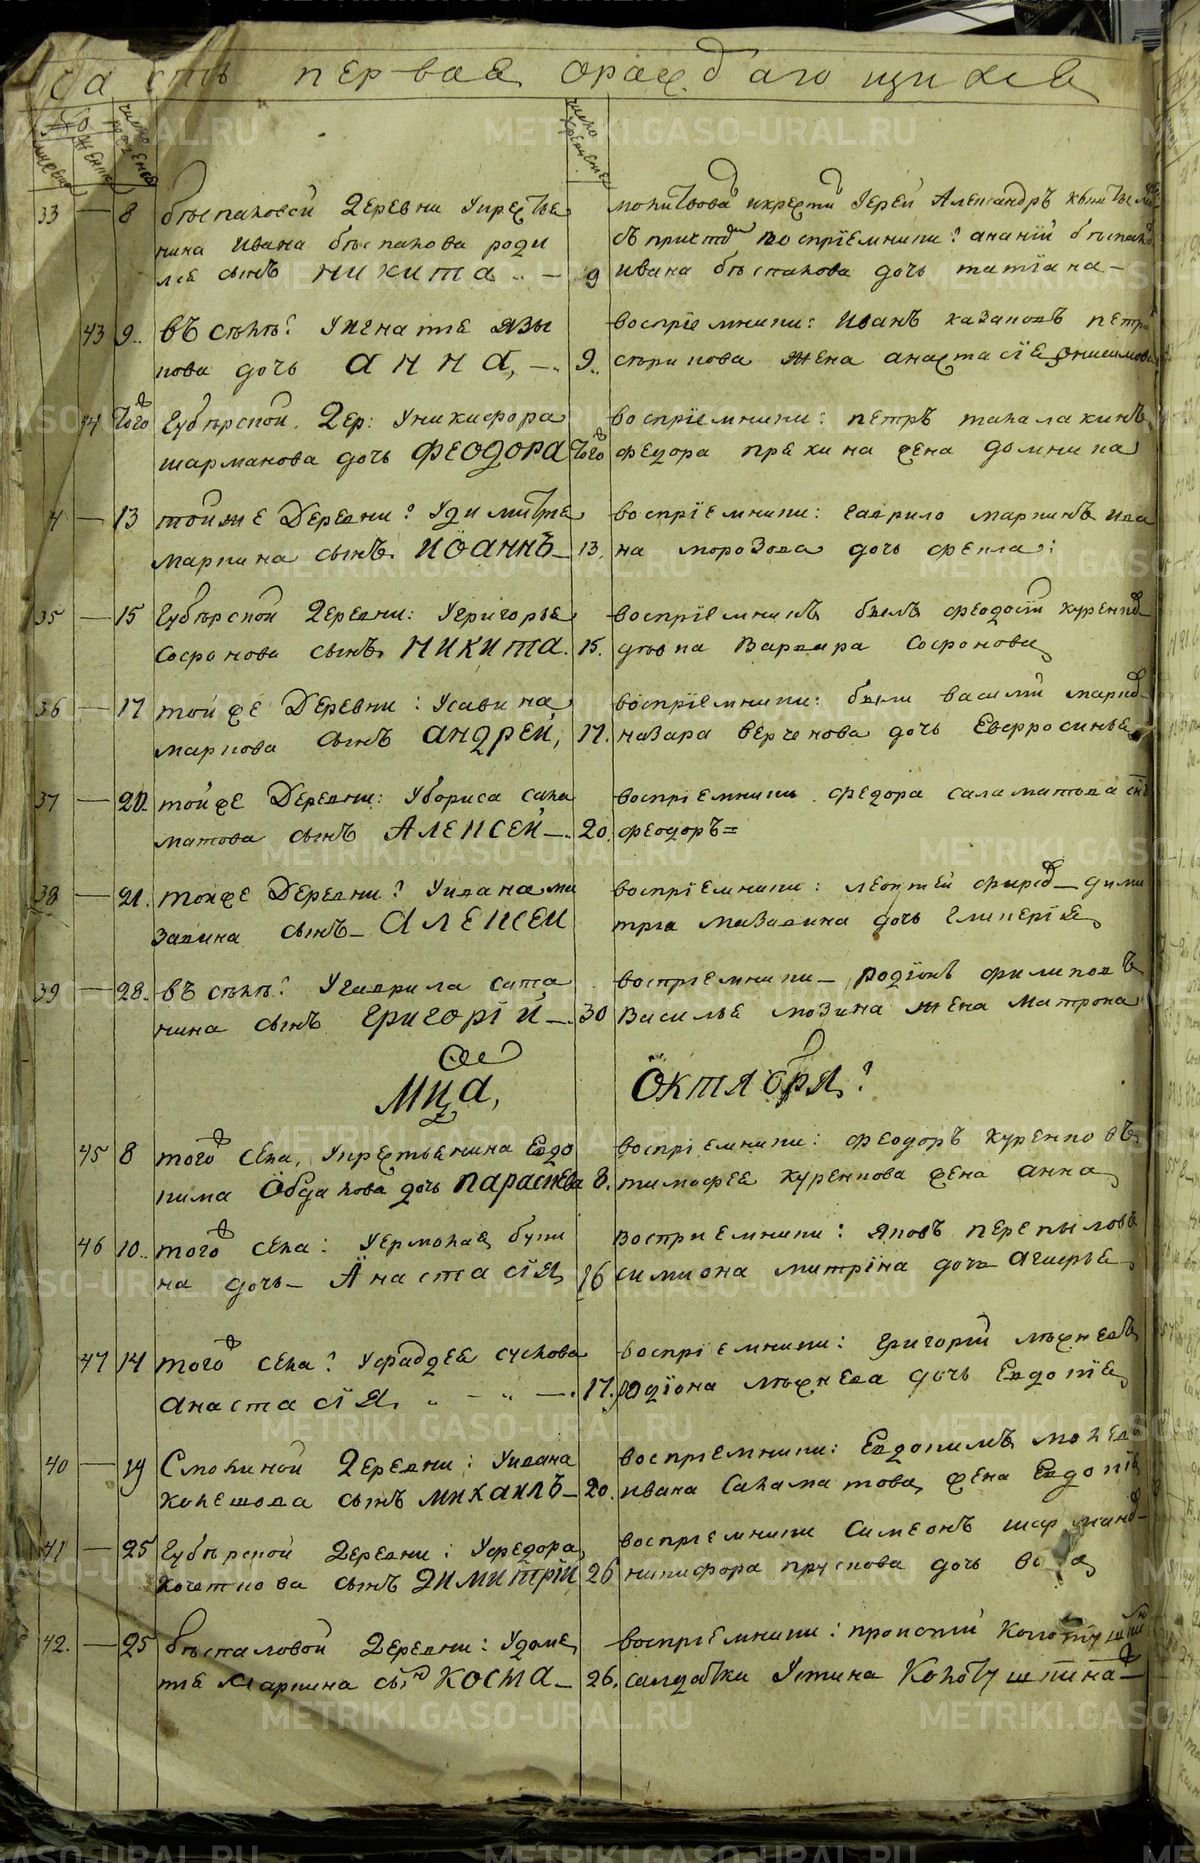 Часть первая ораждающихся
мужеска
женска
число рождения
число крещения
33 — 8 бѣспаловой деревни укрестья
нина ивана бѣспалова роди
лся сынъ никита — 9
молитвовал и крестил иерей Александръ
съ причтом восприемники: ананiй бѣспалов
ивана бѣспалова дочь татiана —
43 9 въ селѣ: Уигнатья язы
кова дочь анна, — 9
восприемники: Иванъ казаковъ петра
жена анастасiя
44 того Губѣрской дер: Уникифора
шарманова дочь феодора того
воспрiемники: петръ
федора жена домника
— 13 тойже деревни: Удимитрия
маркина сынъ иоаннъ — 13
воспрiемники: гаврило маркинъ ива
на морозова дочь фекла:
35 — 15 Губѣрской деревни: Угригорья
Софронова сынъ никита. 15.
воспрiемникъ былъ феодосiй куренков
дѣвка Варвара Софронова
36 — 17 тойже деревни: Усавина
маркова сынъ андрей, 17.
воспрiемники: были василiй марков
назара верченова дочь Евфросинья
37 — 20. тойже деревни: Убориса сала
матова сынъ Алексей — 20.
воспрiемники федора саламатова сынъ
феодоръ =
38 — 21. тойже деревни: Уивана ма
завина сынъ — Алексеи
воспрiемники: дими
трiя мазавина дочь гликерiя
39 — 28. въ селѣ: Угаврила сата
нина сынъ григорiй — 30
воспрiемники — родiонъ филиповъ
Василья мозина жена матрона
Мца, Октября:
45 8 того села, Укрестьянина Евдо
кима Обдалова дочь параскева 8.
воспрiемники: феодоръ куренковъ
тимофея куренкова жена анна
46 10 того села: Уермолая буки
на дочь — Анастасiя 16
восприемники: яковъ перепыловъ
симиона митрiна дочь агафья
47 14 того села: Уфаддея суслова
анастасiя — 17.
воспрiемники: григорiй мѣхневъ
родiона мѣхнева дочь Евдокiя
40 — 19 Смолиной деревни: Уивана
колешова сынъ михаилъ — 20.
воспрiемники: Евдокимъ
ивана Саламатова жена Евдокiя
41 — 25 Губѣрской деревни: Уфедора
кочеткова сынъ димитрiй 26
воспрiемники Симеонъ шарманов —
никифора прускова дочь
42. — 25 бѣспаловой деревни: Удоме
тiя маркина сынъ Косма — 26.
воспрiемники: прокопiй
солдатки Устина
METRIKI.GASO-URAL.RU